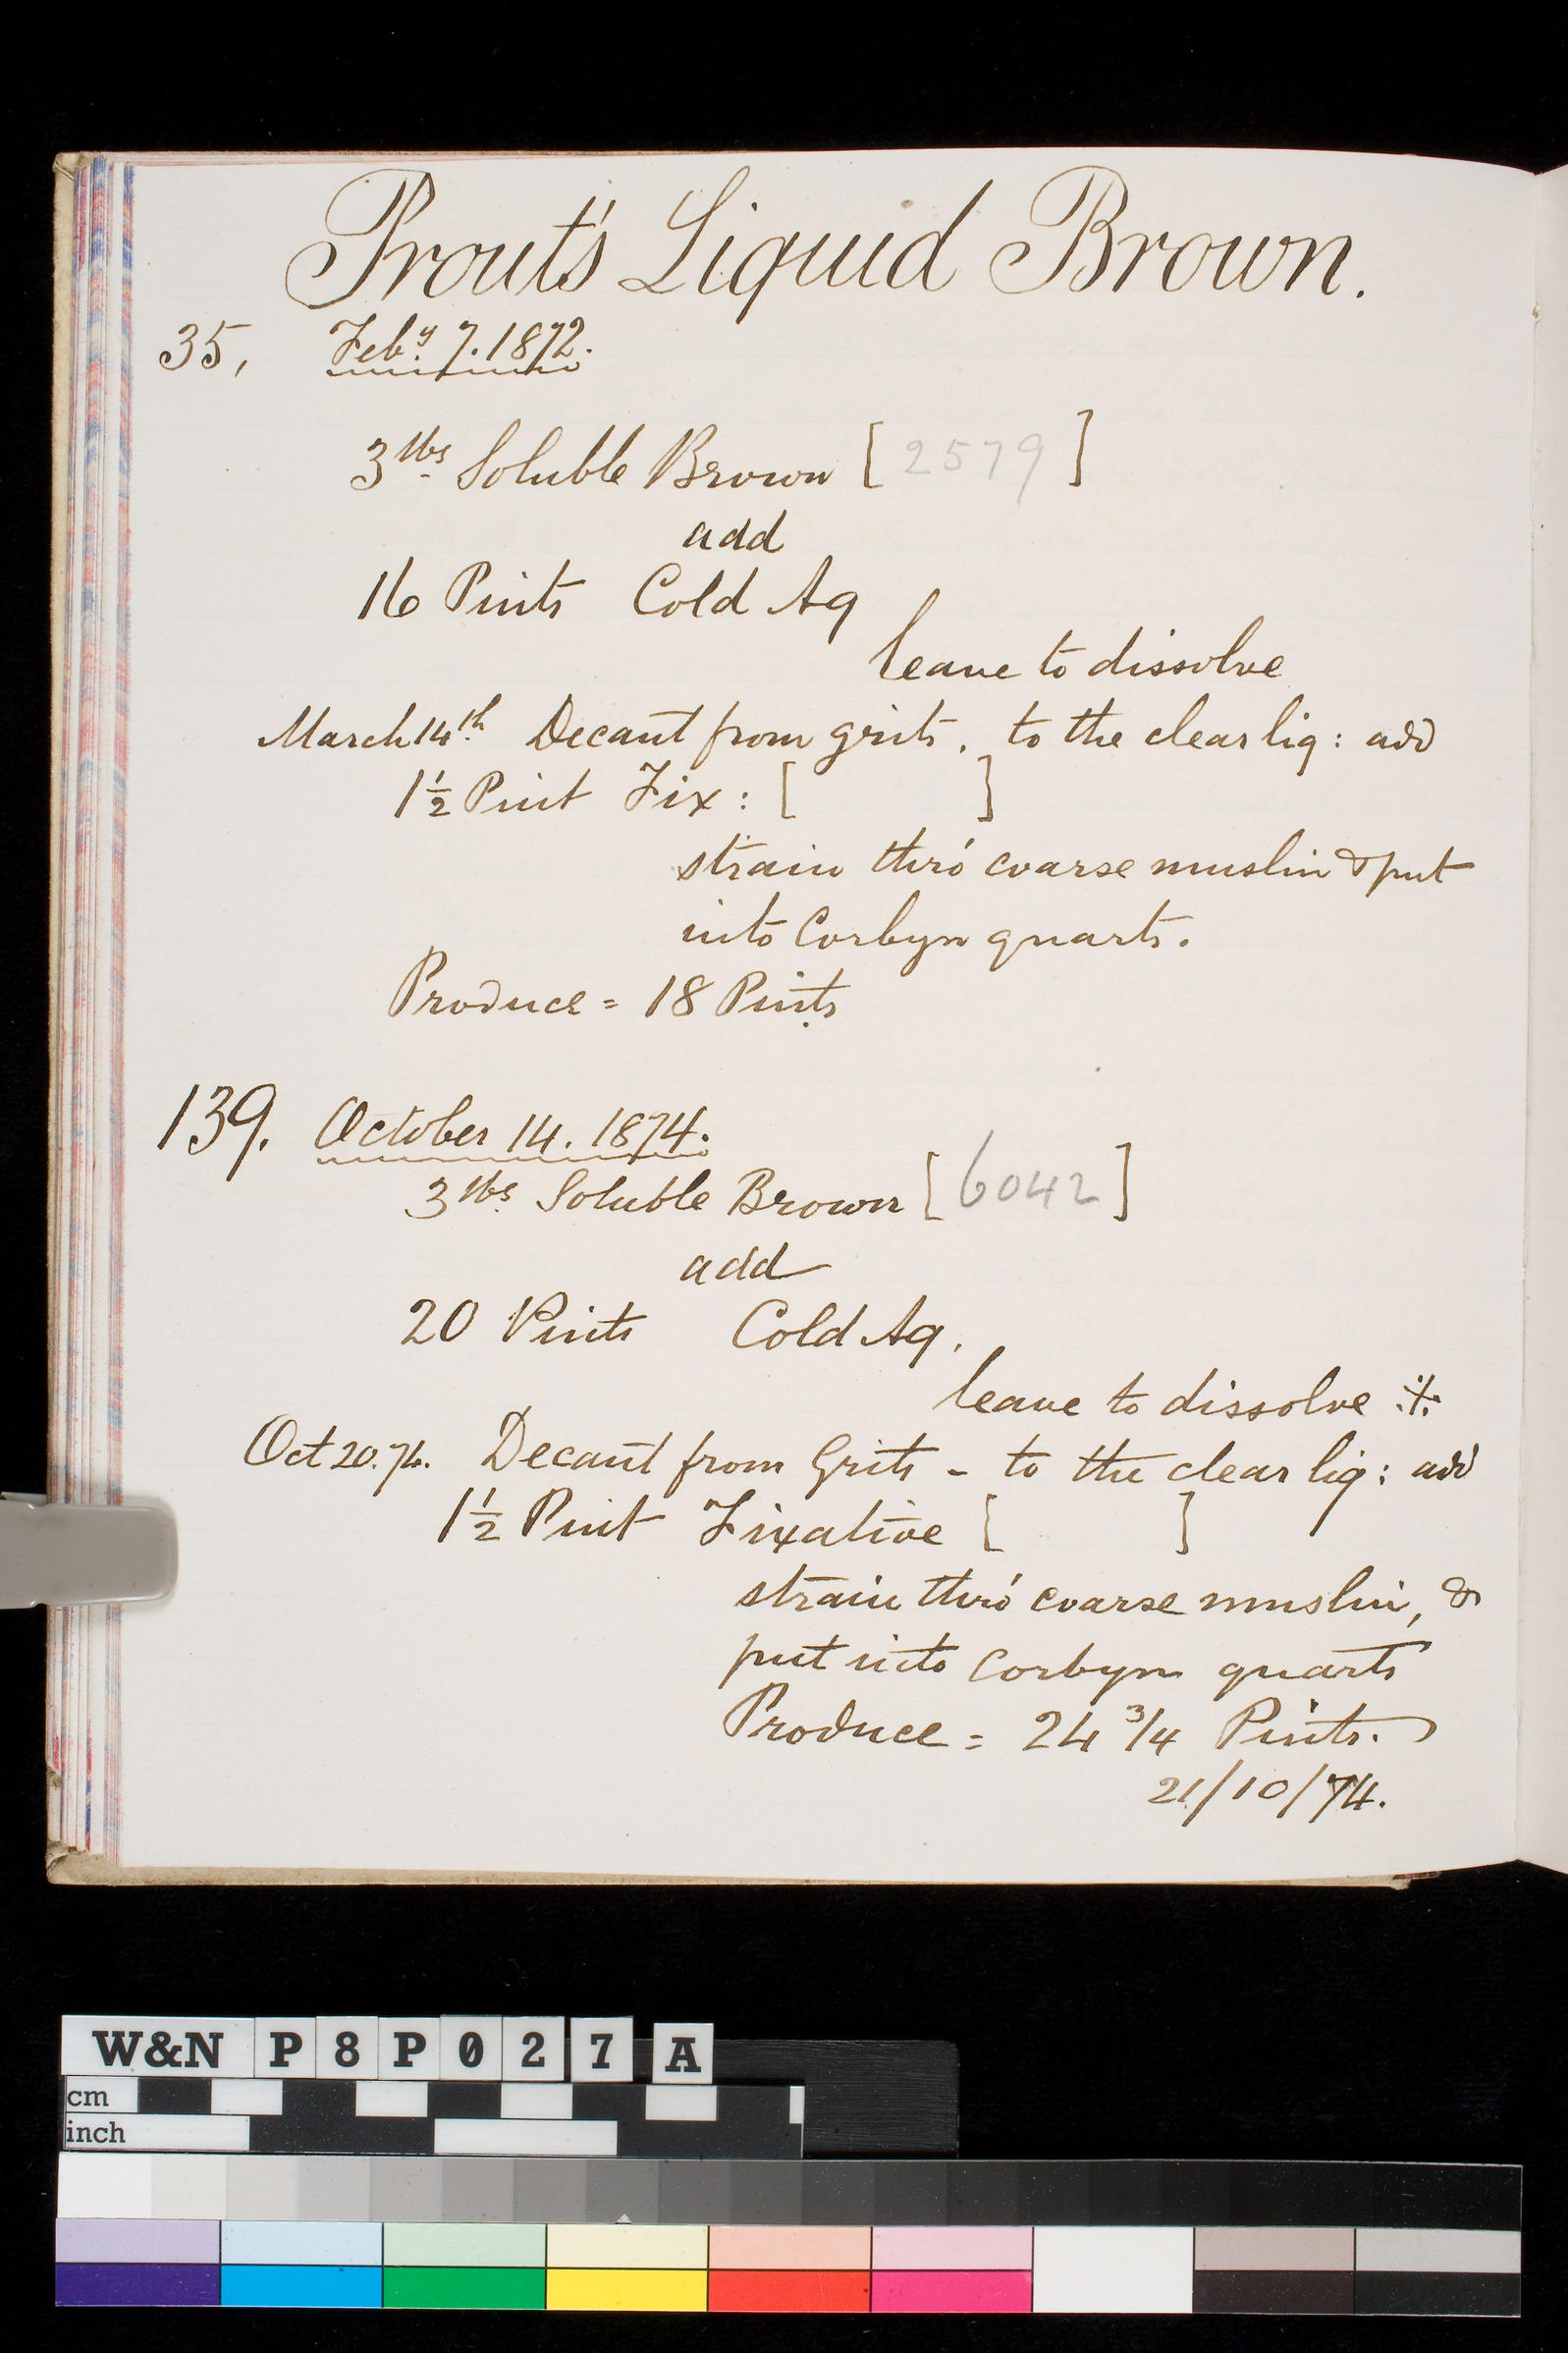 Prout's Liquid Brown.
35, Feby. 7. 1872.
3 lbs. Soluble Brown [2579]
add
16 Pints Cold Aq
leave to dissolve
March 14th. Decant from grits. to the clear liq: add
1½ Pint Fix: [ ]
strain thro' coarse muslin & put
into Corbyn quarts.
Produce = 18 Pints
139. October 14. 1874.
3 lbs. Soluble Brown [6042]
add
20 Pints Cold Aq.
leave to dissolve ⁜
Oct 20. 74. Decant from Grits - to the clear liq: add
1½ Pint Fixative [ ]
strain thro' coarse muslin, &
put into Corbyn quarts
Produce = 24 3/4 Pints.
21/10/74.
W&N P8P027A
cm
inch